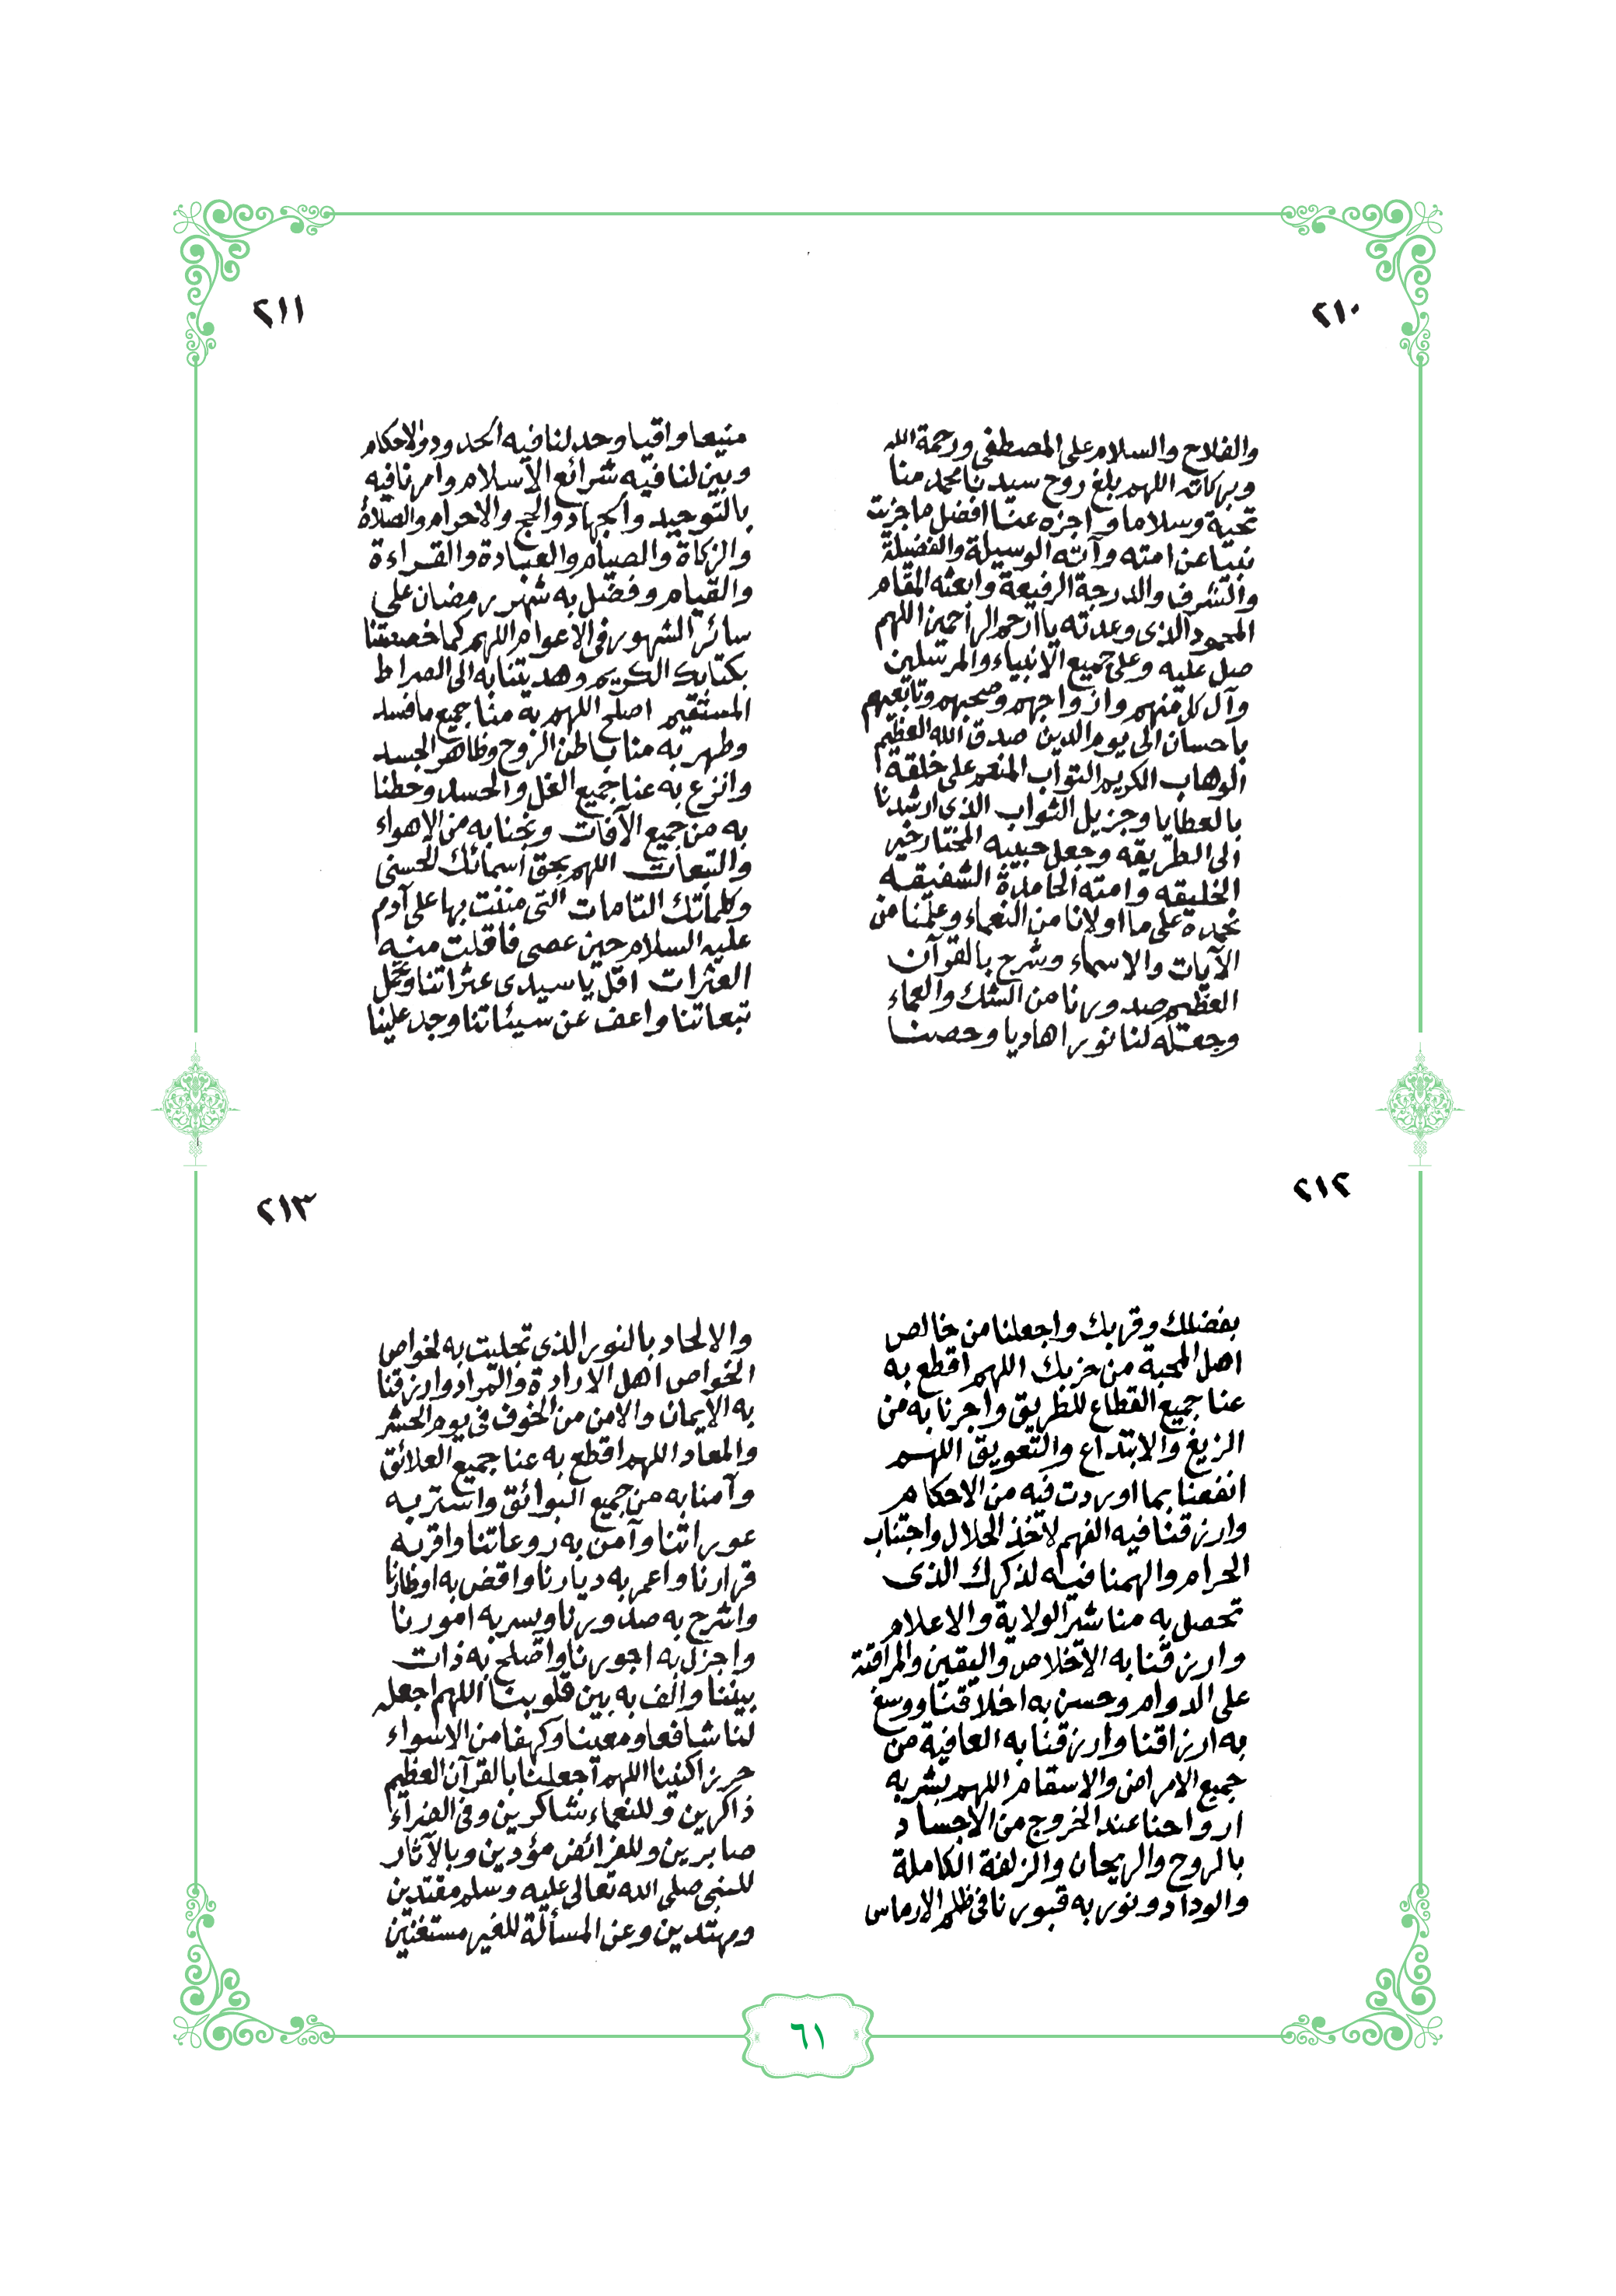 ٢١٠
والفلاح والسلام على المصطفى ورحمة الله
وبركاته اللهم بلغ روح سيدنا محمد منا
تحية وسلاما واجزه عنا افضل ما جزيت
نبيا عن امته وآته الوسيلة والفضيلة
والشرف والدرجة الرفيعة وابعثه المقام
المحمود الذى وعدته يا ارحم الراحمين اللهم
صل عليه وعلى جميع الانبياء والمرسلين
وآل كل منهم وازواجهم وصحبهم وتابعهم
باحسان الى يوم الدين صدق الله العظيم
الوهاب الكريم التواب المنعم على خلقه
بالعطايا وجزيل الثواب الذى ارشدنا
الى الطريقه وجعل حبيبه المختار خير
الخليقه وامته الحامدة الشفيقه
نحمده على ما اولانا من النعماء وعلمنا من
الآيات والاسماء وشرح بالقرآن
العظيم صدورنا من الشك والعماء
وجعله لنا نورا هاديا وحصنا
٢١١
منيعا واقيا وحد لنا فيه الحدود والاحكام
وبين لنا فيه شرائع الاسلام وامرنا فيه
بالتوحيد والجهاد والحج والاحرام والصلاة
والزكاة والصيام والعبادة والقراءة
والقيام وفضل به شهر رمضان على
سائر الشهور فى الاعوام اللهم كما خصصتنا
بكتابك الكريم وهديتنا به الى الصراط
المستقيم اصلح اللهم به منا جميع ما فسد
وطهر به منا باطن الروح وظاهر الجسد
وانزع به عنا جميع الغل والحسد وحطنا
به من جميع الآفات ونجنا به من الاهواء
والتبعات اللهم بحق اسمائك الحسنى
وكلماتك التامات التى مننت بها على آدم
عليه السلام حين عصى فاقلت منه
العثرات اقل يا سيدى عثراتنا وتحمل
تبعاتنا واعف عن سيئاتنا وجد علينا
٢١٢
بفضلك وقربك واجعلنا من خالص
اهل المحبة من حزبك اللهم اقطع به
عنا جميع القطاع للطريق واجرنا به من
الزيغ والابتداع والتعويق اللهم
انفعنا بما اوردت فيه من الاحكام
وارزقنا فيه الفهم لاتخذ الحلال واجتناب
الحرام والهمنا فيه لذكرك الذى
تحصل به منا شر الولاية والاعلام
وارزقنا به الاخلاص واليقين والمراقبة
على الدوام وحسن به اخلاقنا ووسع
به ارزاقنا وارزقنا به العافية من
جميع الامراض والاسقام اللهم بشر به
ارواحنا عند الخروج من الاجساد
بالروح والريحان والزلفة الكاملة
والوداد ونور به قبورنا فى ظلم الارماس
٢١٣
والالحاد بالنور الذى تجليت به لخواص
الخواص اهل الارادة والمراد وارزقنا
به الايمان والامن من الخوف فى يوم الحشر
والمعاد اللهم اقطع به عنا جميع العلائق
وآمنا به من جميع البوائق واستر به
عوراتنا وآمن به روعاتنا واقر به
قرارنا واعمر به ديارنا واقض به اوطارنا
واشرح به صدورنا ويسر به امورنا
واجزل به اجورنا واصلح به ذات
بيننا والف به بين قلوبنا اللهم اجعله
لنا شافعا ومعينا وكهفا من الاسواء
حرزا كنينا اللهم اجعلنا بالقرآن العظيم
ذاكرين وللنعماء شاكرين وفى الضراء
صابرين وللفرائض مؤدين وبالآثار
للنبى صلى الله تعالى عليه وسلم مقتدين
ومهتدين وعن المسألة للغير مستغنين
٦١